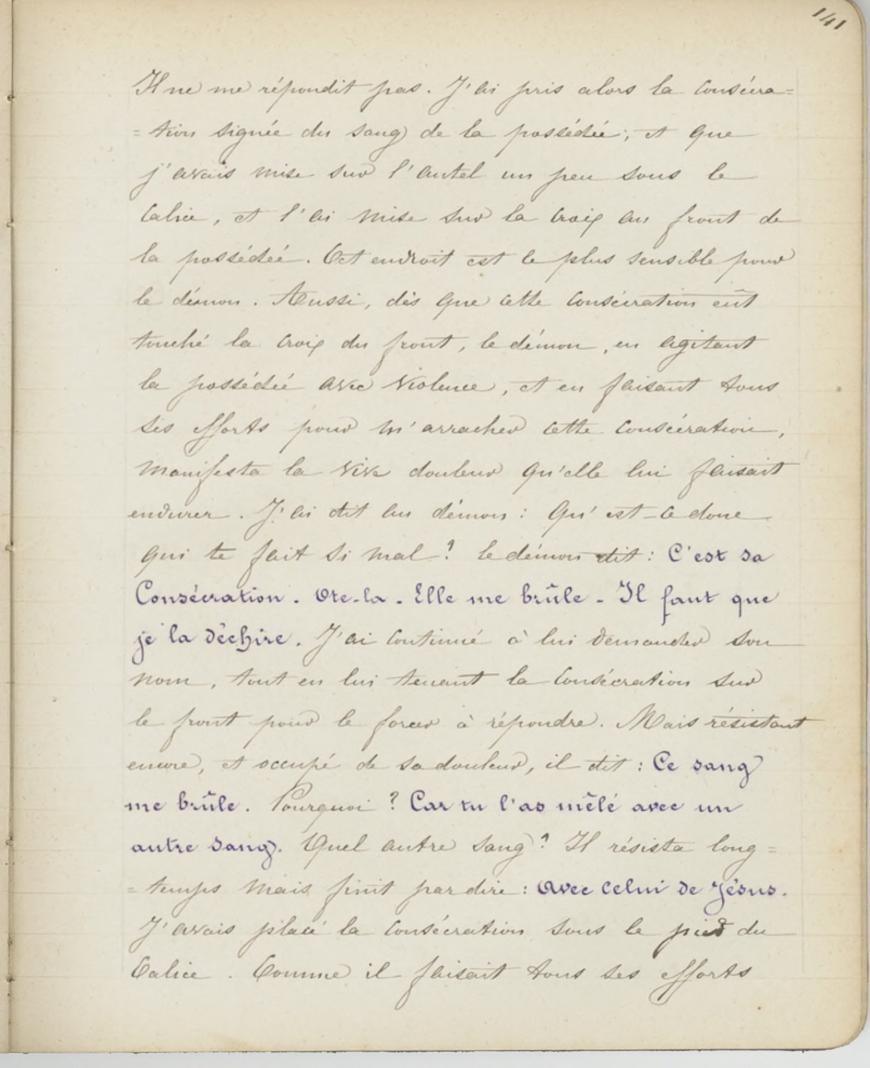 141
Il ne me répondit pas. J'ai pris alors la consécra=
=tion signée du sang de la possédée, et que
j'avais mise sur l'autel un peu sous le
Calice, et l'ai mise sur la croix au front de
la possédée. Cet endroit est le plus sensible pour
le démon. Aussi, dès que cette consécration eût
touché la croix du front, le démon, en agitant
la possédée avec violence, et en faisant tous
ses efforts pour m'arracher cette consécration,
manifesta la vive douleur qu'elle lui faisait
endurer. J'ai dit au démon : Qu'est-ce donc
qui te fait si mal ? Le démon dit : C'est sa
Consécration. Ote-la. Elle me brûle - Il faut que
je la déchire. J'ai continué à lui demander son
nom, tout en lui tenant la consécration sur
le front pour le forcer à répondre. Mais résistant
encore, et occupé de sa douleur, il dit : Ce sang
me brûle. Pourquoi ? Car tu l'as mêlé avec un
autre sang. Quel autre sang ? Il résista long=
=temps mais finit par dire : Avec celui de Jésus.
J'avais placé la consécration sous le pied du
Calice. Comme il faisait tous ses efforts